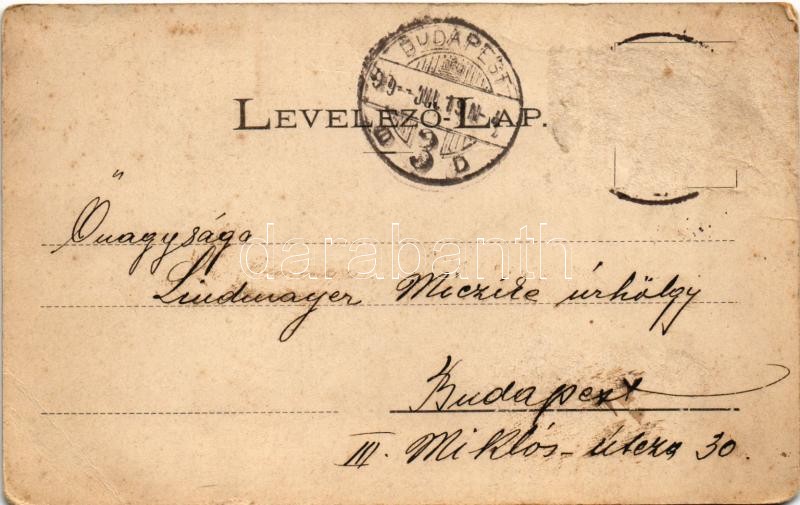 BUDAPEST
99 JUL 19 N 2
B 3 D
LEVELEZŐ-LAP.
Őnagysága
darabanth
Lindmayer Miczike úrhölgy
Budapest
III. Miklós-utcza 30.